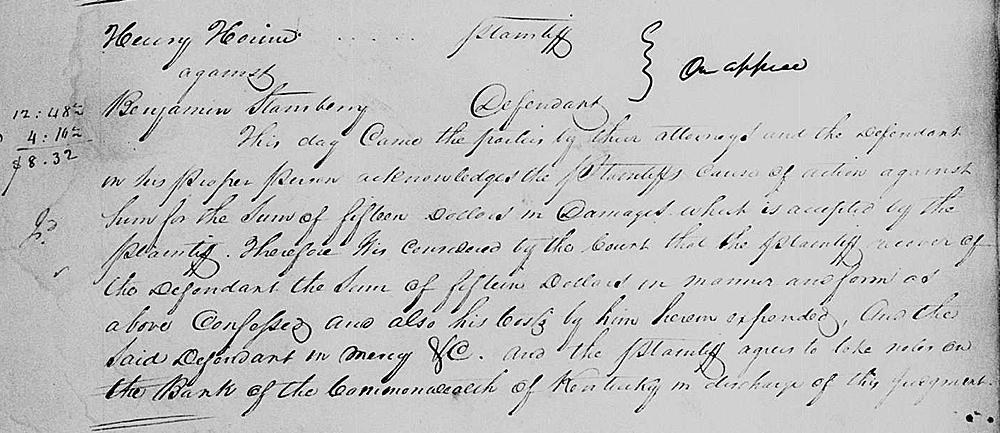 Henry Hoiind ...... Plaintiff
against
On appeal
Benjamin Stanberry Defendant
12:48½
4:16½
$8.32
This day Came the parties by their attorneys and the Defendant
in his Proper Person acknowledges the Plaintiffs Cause of action against
him for the Sum of fifteen Dollars in Damages which is accepted by the
Plaintiff. Therefore tis considered by the Court that the Plaintiff recover of
the Defendant the Sum of fifteen Dollars in manner and form as
above Confessed and also his Costs by him herein expended, And the
Said Defendant in mercy &C. and the Plaintiff agrees to take notes on
the Bank of the Commonwealth of Kentucky in discharge of this Judgment.